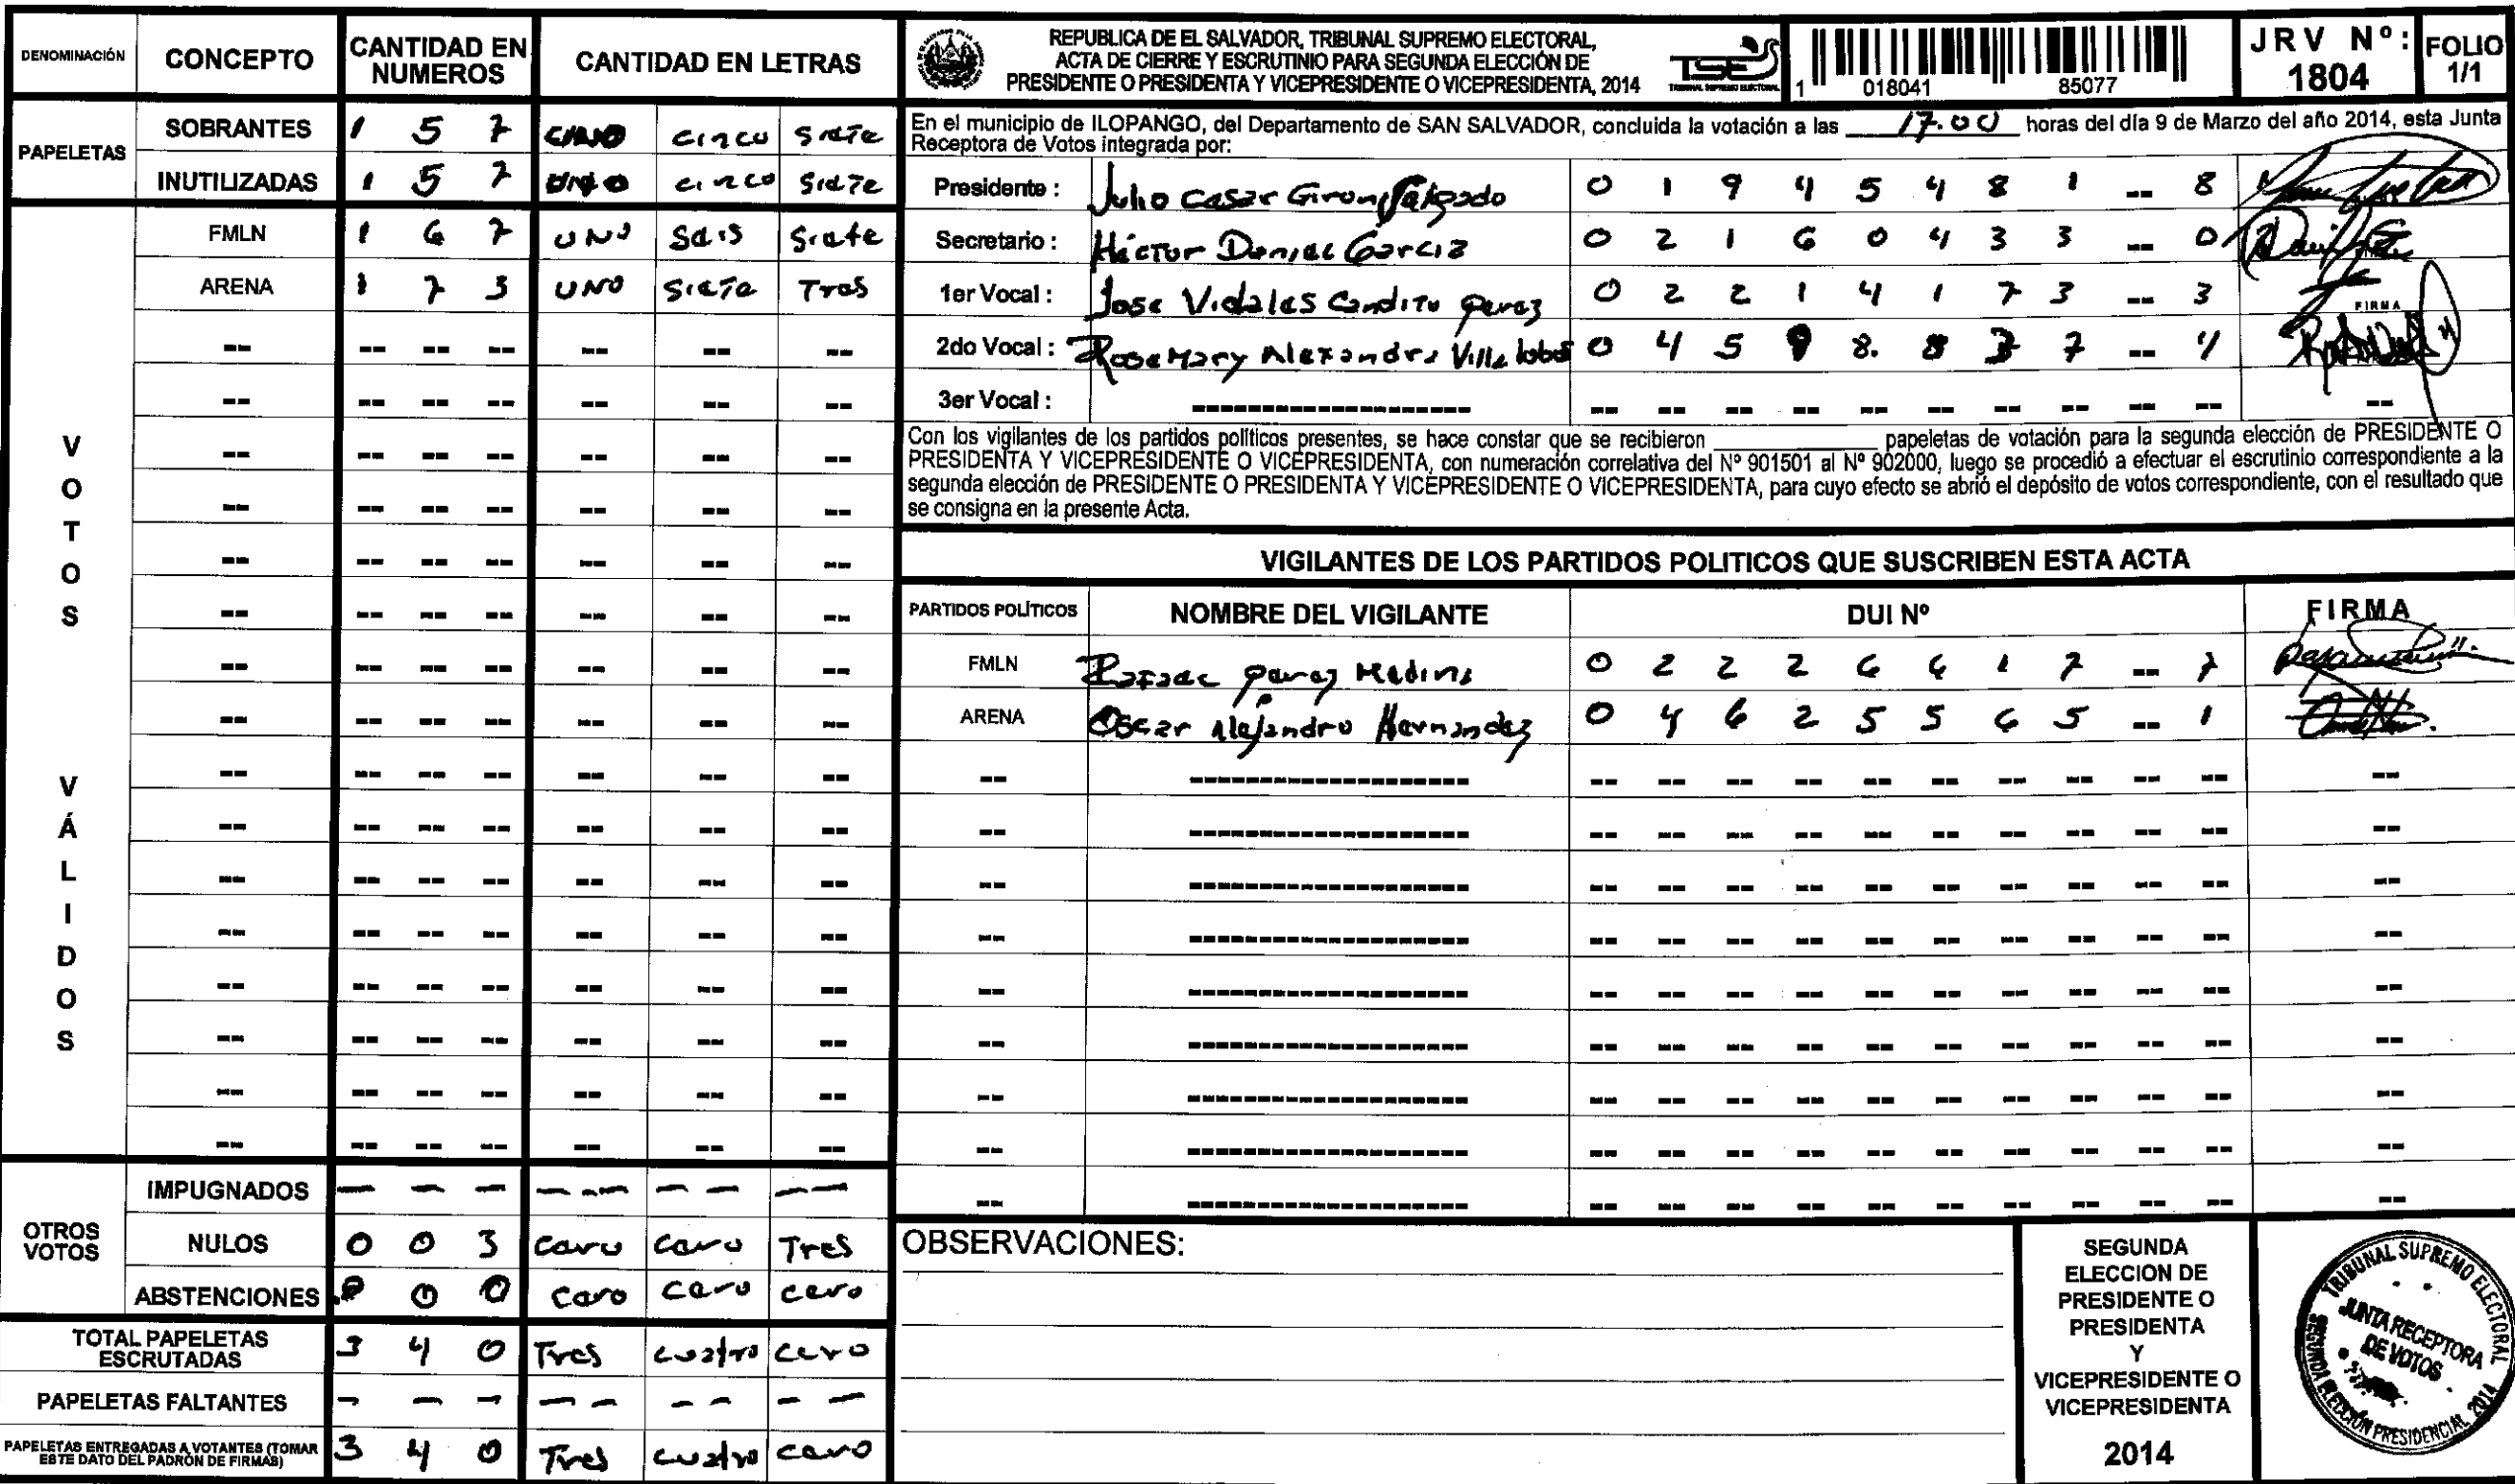 DENOMINACIÓN CONCEPTO CANTIDAD EN NUMEROS CANTIDAD EN LETRAS
PAPELETAS
SOBRANTES 1 5 7 UNO cinco siete
INUTILIZADAS 1 5 7 UNO cinco siete
VOTOS VÁLIDOS
FMLN 1 6 7 UNO Seis Siete
ARENA 1 7 3 UNO Siete Tres
OTROS VOTOS
IMPUGNADOS — — — — — — — — —
NULOS 0 0 3 cero cero Tres
ABSTENCIONES 0 0 0 cero cero cero
TOTAL PAPELETAS ESCRUTADAS 3 4 0 Tres cuatro cero
PAPELETAS FALTANTES - - - - - - - - -
PAPELETAS ENTREGADAS A VOTANTES (TOMAR ESTE DATO DEL PADRÓN DE FIRMAS) 3 4 0 Tres cuatro cero
REPUBLICA DE EL SALVADOR, TRIBUNAL SUPREMO ELECTORAL,
ACTA DE CIERRE Y ESCRUTINIO PARA SEGUNDA ELECCIÓN DE
PRESIDENTE O PRESIDENTA Y VICEPRESIDENTE O VICEPRESIDENTA, 2014
TSE
TRIBUNAL SUPREMO ELECTORAL
1 018041 85077
JRV Nº: 1804
FOLIO 1/1
En el municipio de ILOPANGO, del Departamento de SAN SALVADOR, concluida la votación a las 17.00 horas del día 9 de Marzo del año 2014, esta Junta
Receptora de Votos integrada por:
Presidente : Julio Cesar Giron Salgado 0 1 9 4 5 4 8 1 -- 8
Secretario : Héctor Daniel Garcia 0 2 1 6 0 4 3 3 -- 0
1er Vocal : Jose Vidales Candito perez 0 2 2 1 4 1 7 3 -- 3
FIRMA
2do Vocal : RoseMary Alexandra Villalobos 0 4 5 9 8. 8 3 7 -- 4
3er Vocal : -- -- -- -- -- -- -- -- -- --
Con los vigilantes de los partidos políticos presentes, se hace constar que se recibieron ________ papeletas de votación para la segunda elección de PRESIDENTE O
PRESIDENTA Y VICEPRESIDENTE O VICEPRESIDENTA, con numeración correlativa del Nº 901501 al Nº 902000, luego se procedió a efectuar el escrutinio correspondiente a la
segunda elección de PRESIDENTE O PRESIDENTA Y VICEPRESIDENTE O VICEPRESIDENTA, para cuyo efecto se abrió el depósito de votos correspondiente, con el resultado que
se consigna en la presente Acta.
VIGILANTES DE LOS PARTIDOS POLITICOS QUE SUSCRIBEN ESTA ACTA
PARTIDOS POLÍTICOS NOMBRE DEL VIGILANTE DUI Nº FIRMA
FMLN Rafael perez Medina 0 2 2 2 6 6 1 7 -- 7
ARENA Oscar Alejandro Hernandez 0 4 6 2 5 5 6 5 -- 1
OBSERVACIONES:
SEGUNDA
ELECCION DE
PRESIDENTE O
PRESIDENTA
Y
VICEPRESIDENTE O
VICEPRESIDENTA
2014
TRIBUNAL SUPREMO ELECTORAL
JUNTA RECEPTORA
DE VOTOS
SEGUNDA ELECCIÓN PRESIDENCIAL 2014